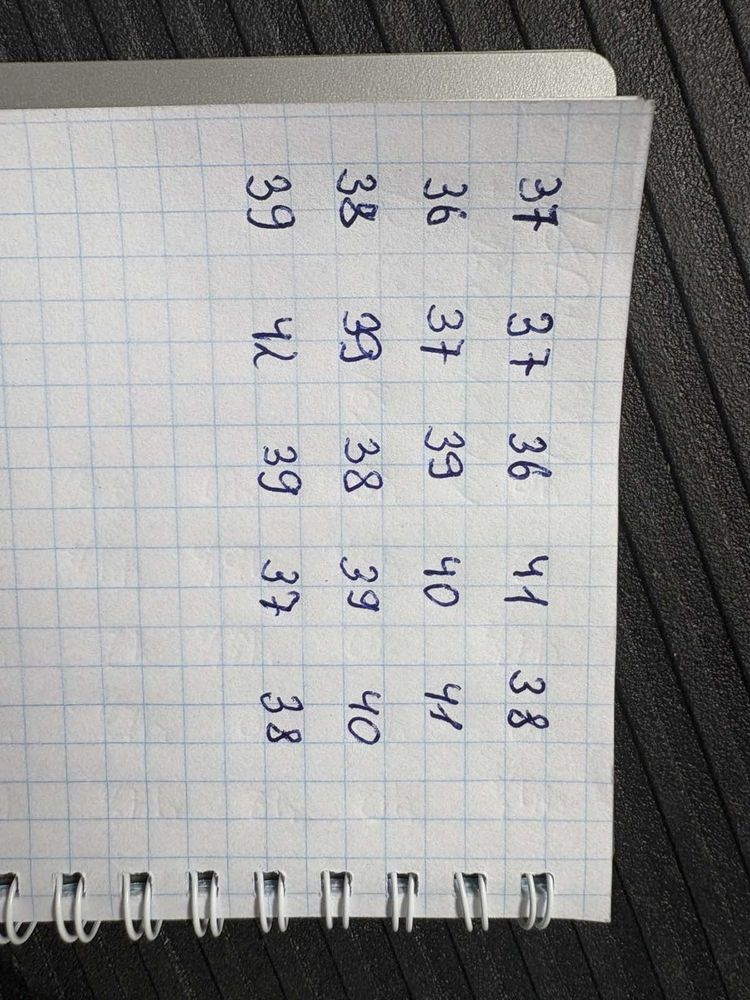 37 37 36 41 38
36 37 39 40 41
38 39 38 39 40
39 42 39 37 38